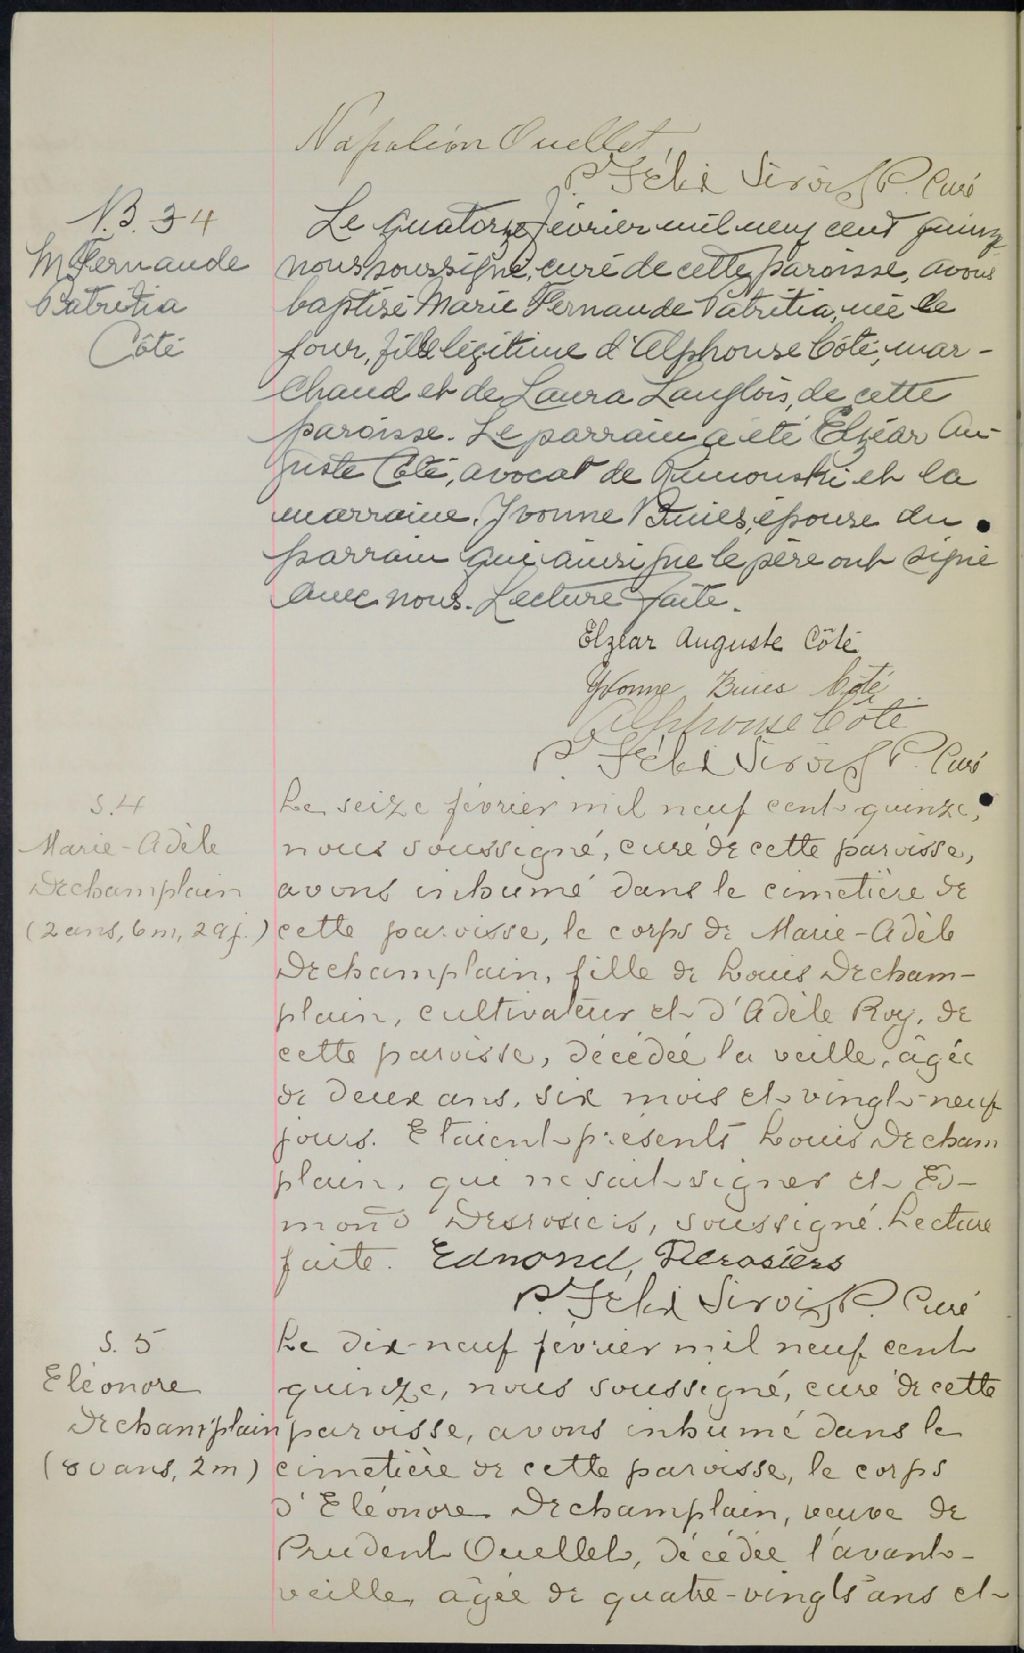 Napoléon Ouellet,
P. Félix Sirois P. Curé
N.B. 34
M. Fernande
Patritia
Côté
Le quatorze février mil neuf cent quinze
nous soussigné, curé de cette paroisse, avons
baptisé Marie Fernande Patritia, née le
jour, fille légitime d'Alphonse Côté, mar-
chand et de Laura Langlois, de cette
paroisse. Le parrain a été Elzéar Au-
guste Côté, avocat de Rimouski et la
marraine, Yvonne Buies, épouse du
parrain qui ainsi que le père ont signé
avec nous. Lecture faite.
Elzéar Auguste Côté
Yvonne Buies Côté
Alphonse Côté
P. Félix Sirois P. Curé
S. 4
Marie-Adèle
Dechamplain
(2 ans, 6 m, 29 j.)
Le seize février mil neuf cent quinze,
nous soussigné, curé de cette paroisse,
avons inhumé dans le cimetière de
cette paroisse, le corps de Marie-Adèle
Dechamplain, fille de Louis Decham-
plain, cultivateur et d'Adèle Roy, de
cette paroisse, décédée la veille, âgée
de deux ans, six mois et vingt-neuf
jours. Etaient présents Louis Decham
plain, qui ne sait signer et Ed-
mond Desrosiers, soussigné. Lecture
faite. Edmond Derosiers
P. Félix Sirois P. Curé
S. 5
Eléonore
Dechamplain
(80 ans, 2 m)
Le dix-neuf février mil neuf cent
quinze, nous soussigné, curé de cette
paroisse, avons inhumé dans le
cimetière de cette paroisse, le corps
d'Eléonore Dechamplain, veuve de
Prudent Ouellet, décédée l'avant-
veille, âgée de quatre-vingts ans et